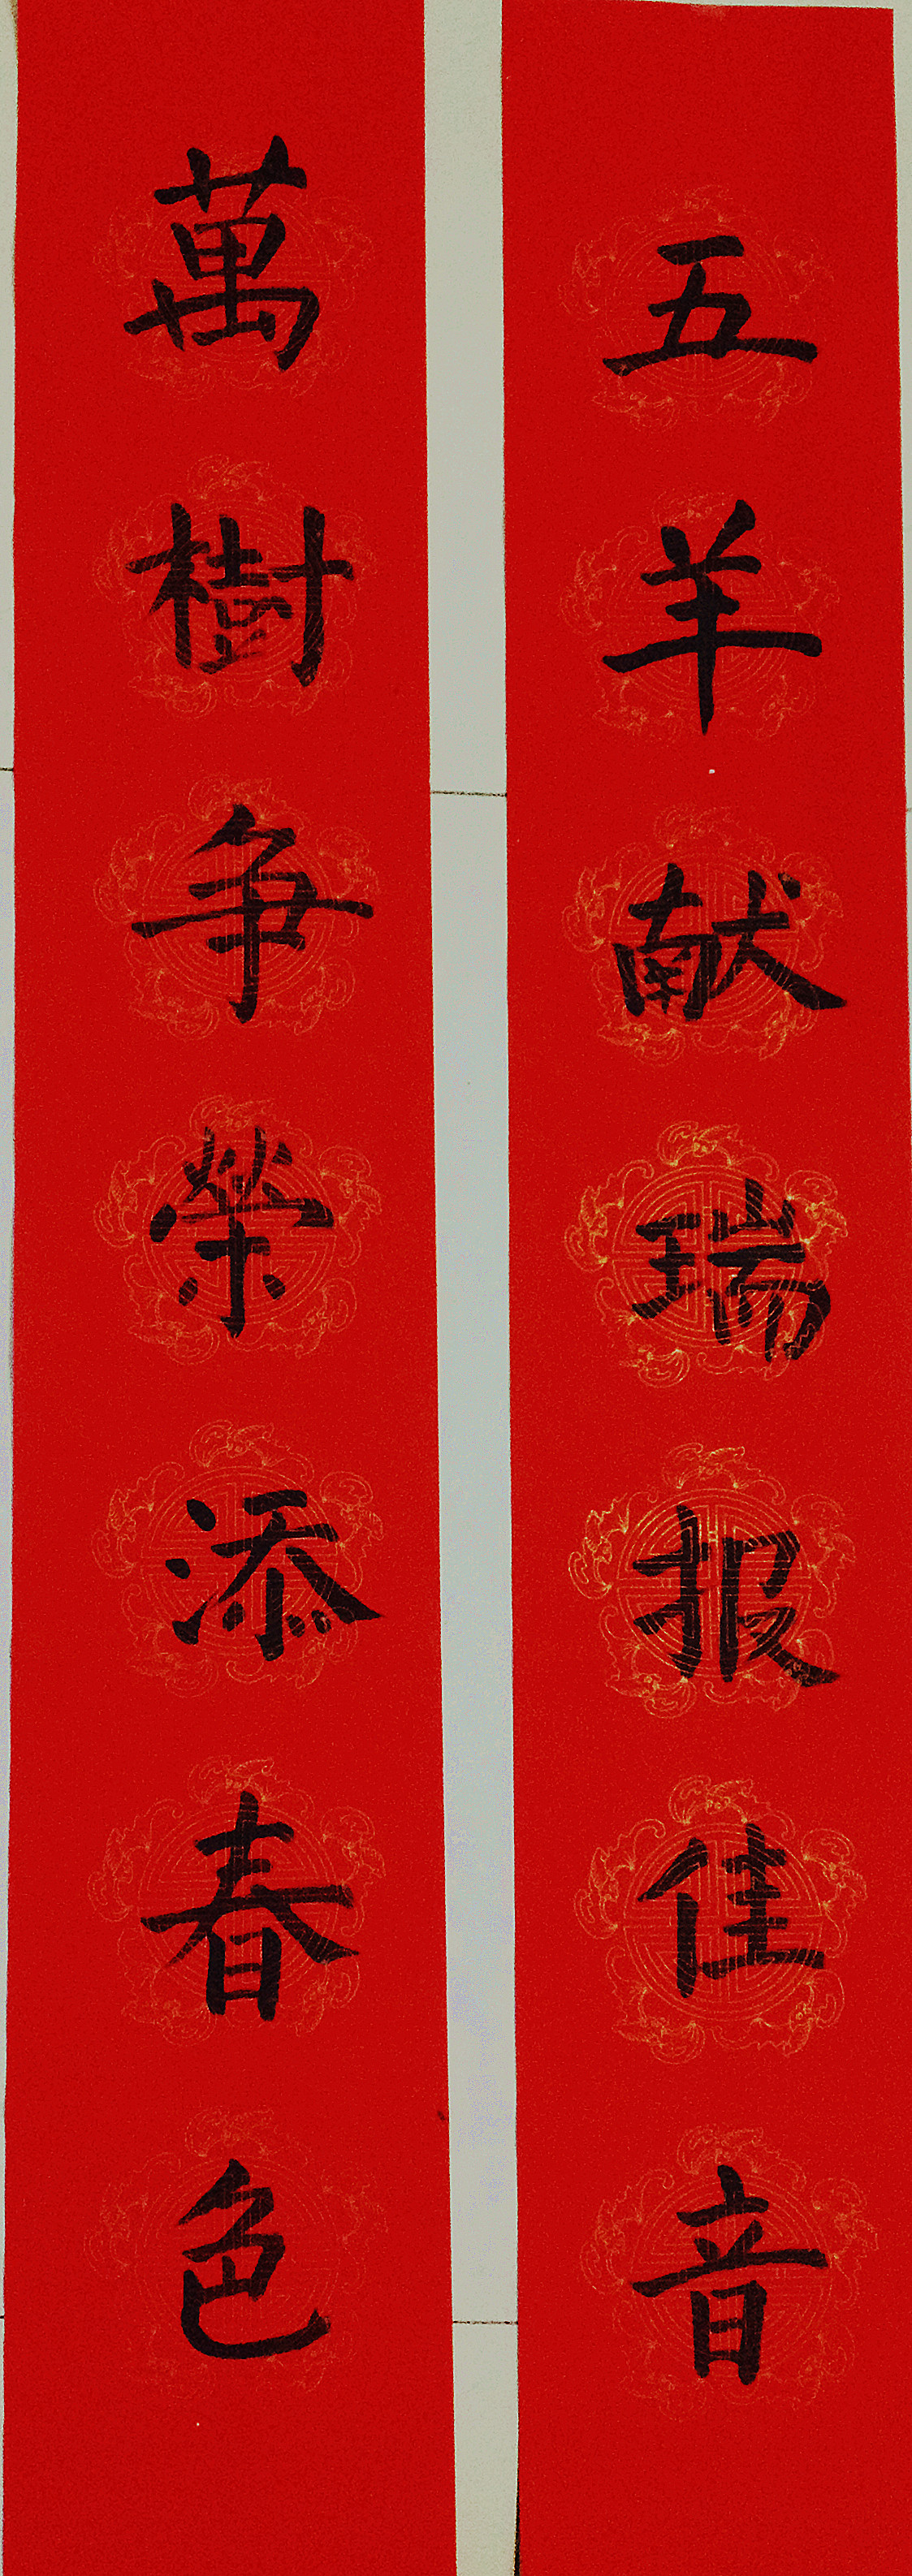 五羊献瑞报佳音
萬樹争榮添春色